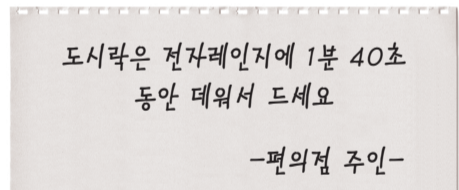 도시락은 전자레인지에 1분 40초
동안 데워서 드세요
-편의점 주인-